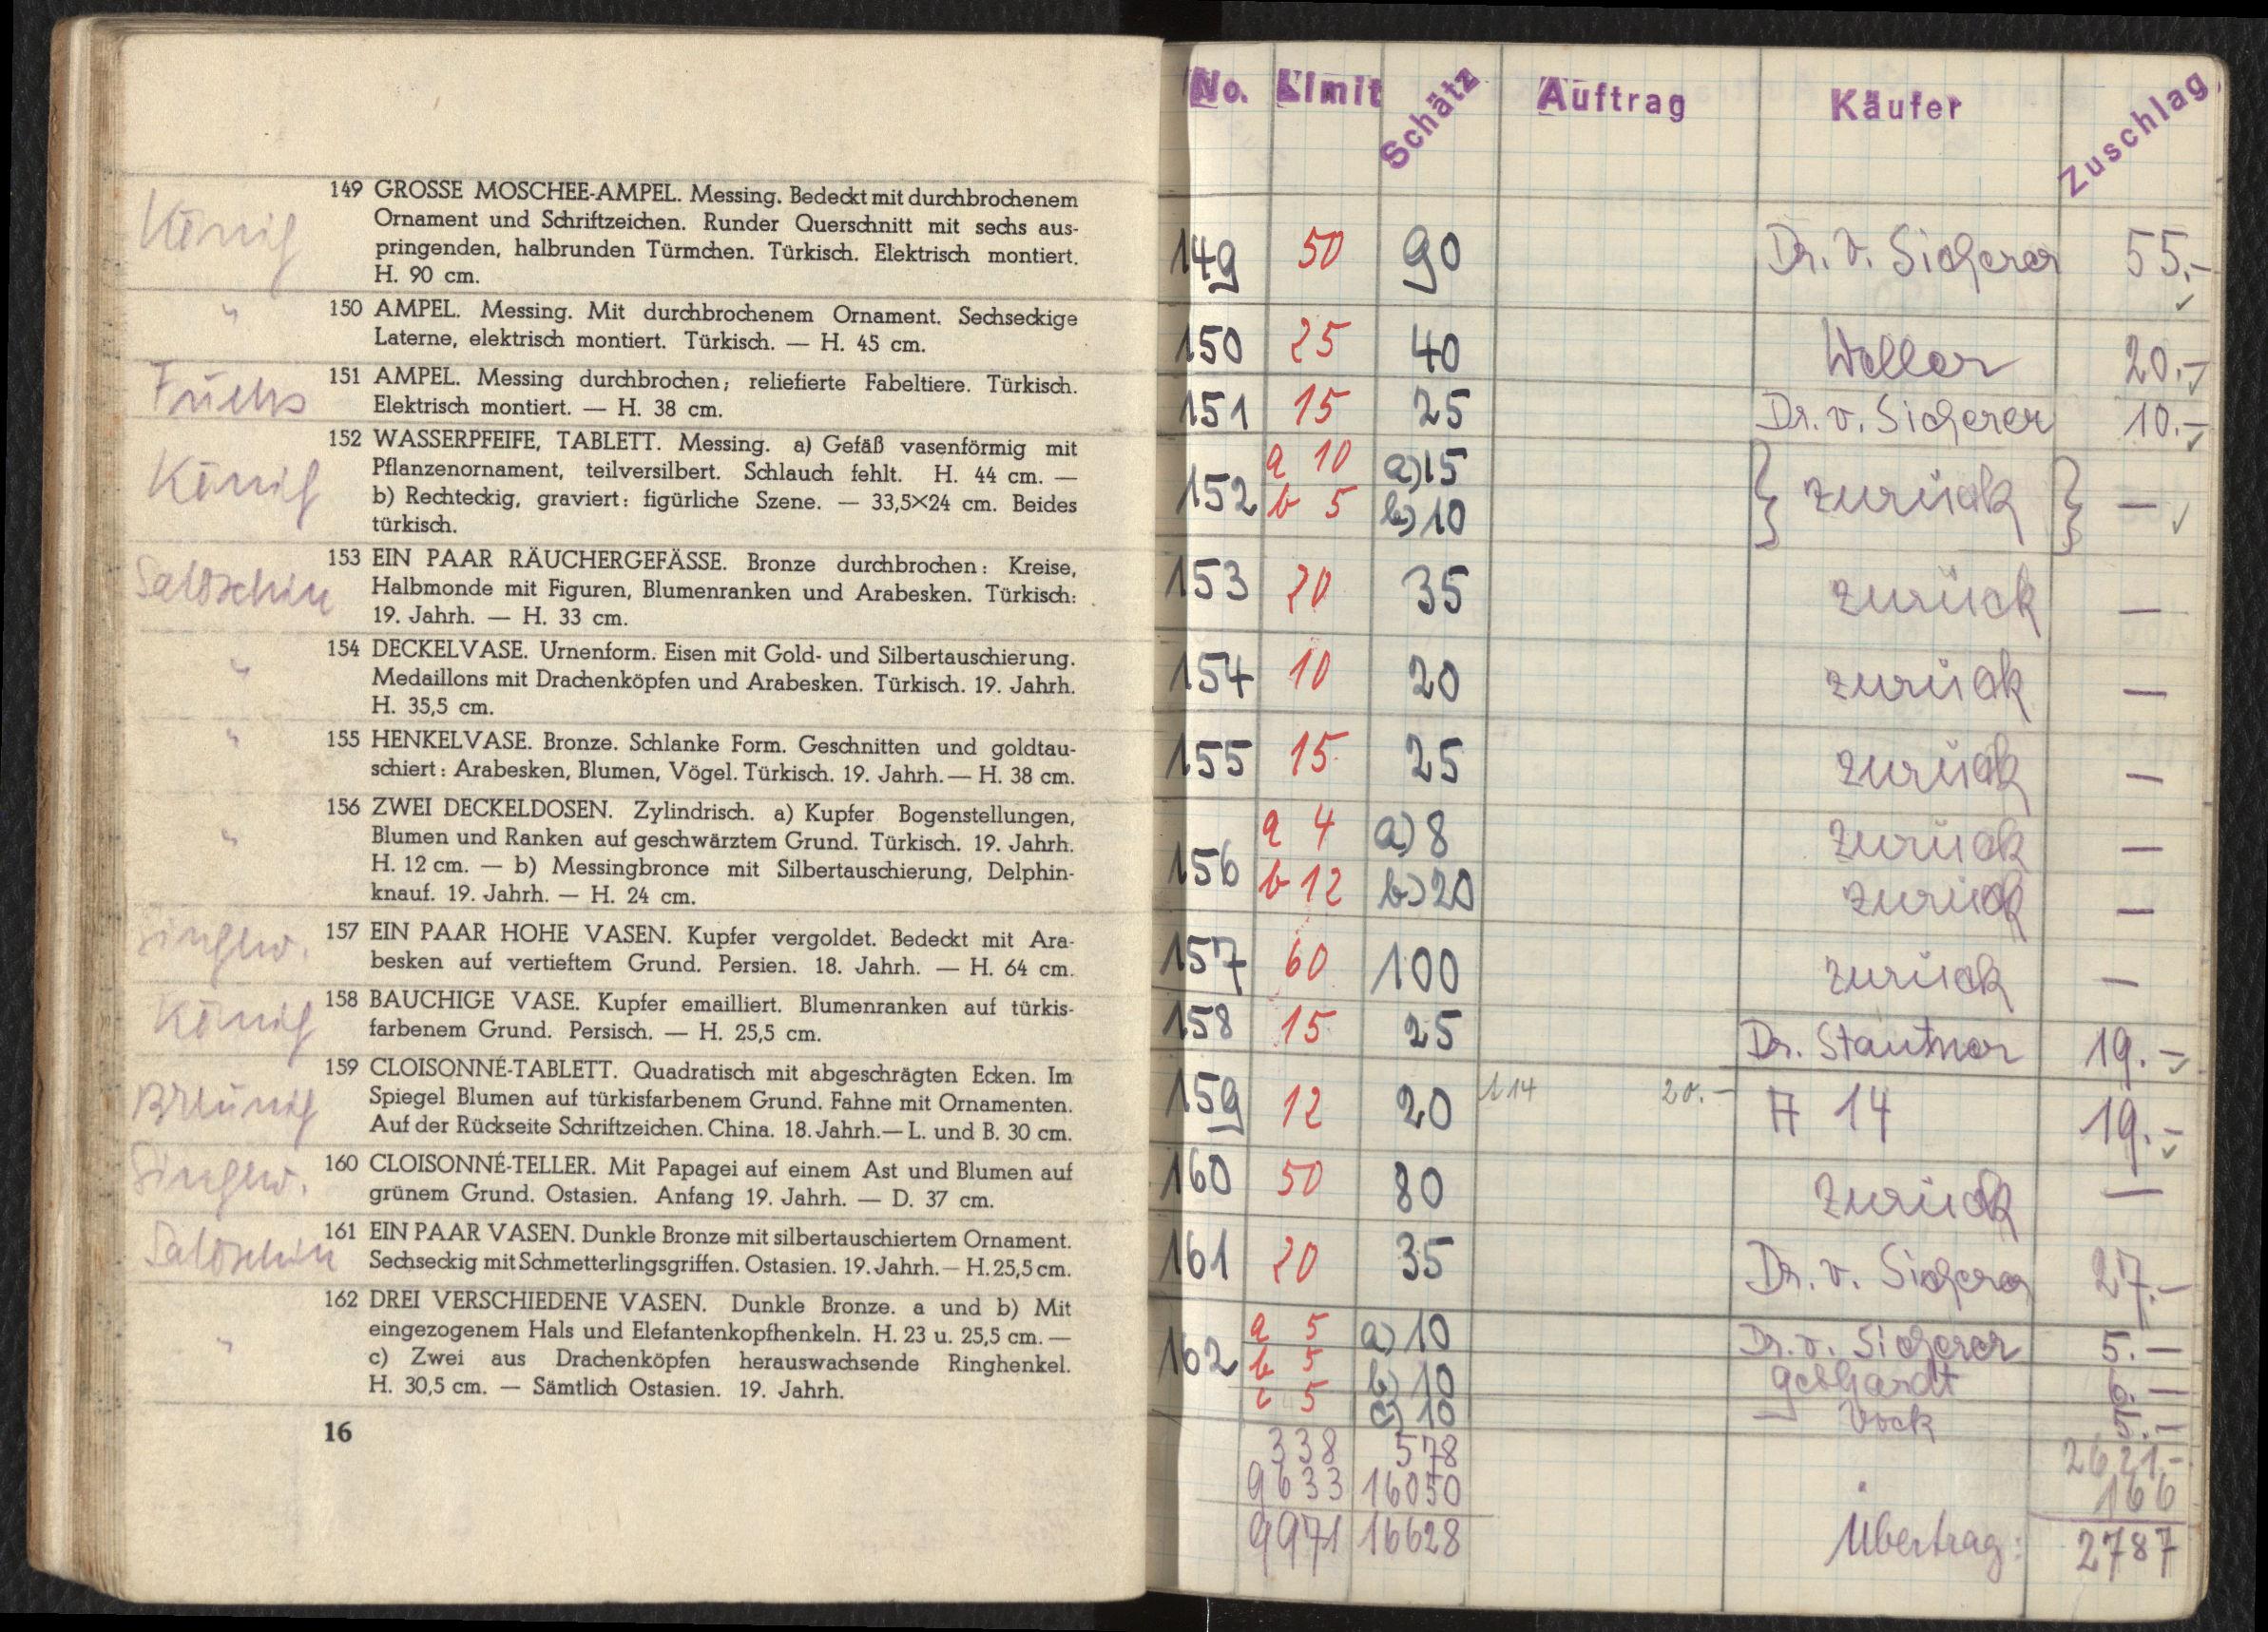 König
149 GROSSE MOSCHEE-AMPEL. Messing. Bedeckt mit durchbrochenem
Ornament und Schriftzeichen. Runder Querschnitt mit sechs aus-
pringenden, halbrunden Türmchen. Türkisch. Elektrisch montiert.
H. 90 cm.
"
150 AMPEL. Messing. Mit durchbrochenem Ornament. Sechseckige
Laterne, elektrisch montiert. Türkisch. — H. 45 cm.
Fuchs
151 AMPEL. Messing durchbrochen; reliefierte Fabeltiere. Türkisch.
Elektrisch montiert. — H. 38 cm.
König
152 WASSERPFEIFE, TABLETT. Messing. a) Gefäß vasenförmig mit
Pflanzenornament, teilversilbert. Schlauch fehlt. H. 44 cm. —
b) Rechteckig, graviert: figürliche Szene. — 33,5×24 cm. Beides
türkisch.
Saloschin
153 EIN PAAR RÄUCHERGEFÄSSE. Bronze durchbrochen: Kreise,
Halbmonde mit Figuren, Blumenranken und Arabesken. Türkisch:
19. Jahrh. — H. 33 cm.
"
154 DECKELVASE. Urnenform. Eisen mit Gold- und Silbertauschierung.
Medaillons mit Drachenköpfen und Arabesken. Türkisch. 19. Jahrh.
H. 35,5 cm.
"
155 HENKELVASE. Bronze. Schlanke Form. Geschnitten und goldtau-
schiert: Arabesken, Blumen, Vögel. Türkisch. 19. Jahrh. — H. 38 cm.
"
156 ZWEI DECKELDOSEN. Zylindrisch. a) Kupfer Bogenstellungen,
Blumen und Ranken auf geschwärztem Grund. Türkisch. 19. Jahrh.
H. 12 cm. — b) Messingbronce mit Silbertauschierung, Delphin-
knauf. 19. Jahrh. — H. 24 cm.
Singew.
157 EIN PAAR HOHE VASEN. Kupfer vergoldet. Bedeckt mit Ara-
besken auf vertieftem Grund. Persien. 18. Jahrh. — H. 64 cm.
König
158 BAUCHIGE VASE. Kupfer emailliert. Blumenranken auf türkis-
farbenem Grund. Persisch. — H. 25,5 cm.
Breunig
159 CLOISONNÉ-TABLETT. Quadratisch mit abgeschrägten Ecken. Im
Spiegel Blumen auf türkisfarbenem Grund. Fahne mit Ornamenten.
Auf der Rückseite Schriftzeichen. China. 18. Jahrh. — L. und B. 30 cm.
Singew.
160 CLOISONNÉ-TELLER. Mit Papagei auf einem Ast und Blumen auf
grünem Grund. Ostasien. Anfang 19. Jahrh. — D. 37 cm.
Saloschin
161 EIN PAAR VASEN. Dunkle Bronze mit silbertauschiertem Ornament.
Sechseckig mit Schmetterlingsgriffen. Ostasien. 19. Jahrh. — H. 25,5 cm.
"
162 DREI VERSCHIEDENE VASEN. Dunkle Bronze. a und b) Mit
eingezogenem Hals und Elefantenkopfhenkeln. H. 23 u. 25,5 cm. —
c) Zwei aus Drachenköpfen herauswachsende Ringhenkel.
H. 30,5 cm. — Sämtlich Ostasien. 19. Jahrh.
16
No. Limit Schätz Auftrag Käufer Zuschlag
149 50 90 Dr. v. Sicherer 55.-
150 25 40 Weller 20.-
151 15 25 Dr. v. Sicherer 10.-
152 a 10 a) 15 zurück —
b 5 b) 10
153 20 35 zurück —
154 10 20 zurück —
155 15 25 zurück —
156 a 4 a) 8 zurück —
b 12 b) 20 zurück —
157 60 100 zurück —
158 15 25 Dr. Stautner 19.-
159 12 20 20.- A 14 19.-
160 50 80 zurück —
161 20 35 Dr. v. Sicherer 27.-
162 a 5 a) 10 Dr. v. Sicherer 5.—
b 5 b) 10 Gebhardt 6.—
c 5 c) 10 Vock 5.—
338 578 2621.-
9633 16050 166
9971 16628 Übertrag: 2787